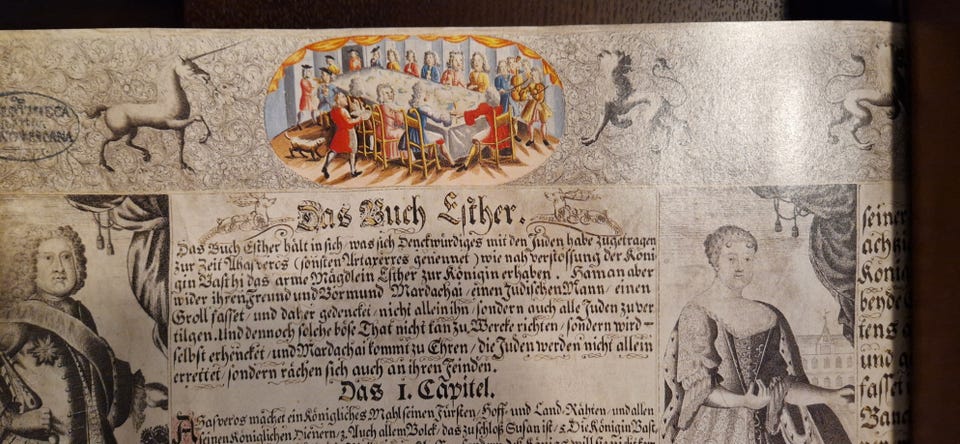 Das Buch Esther.
Das Buch Esther hält in sich / was sich Denckwürdiges mit den Juden habe zugetragen
zur Zeit Ahasveros (sonsten Artaxerxes genennet) wie nah verstossung der Köni
gin Vasthi das arme Mägdlein Esther zur Königin erhaben. Haman aber
wider ihren Freund und Vormund Mardachai / einen Jüdischen Mann / einen
Groll fasset / und daher gedencket / nicht allein ihn / sondern auch alle Juden zu ver
tilgen. Und dennoch solche böse That nicht kan zu Wercke richten / sondern wird =
selbst erhencket / und Mardachai kommt zu Ehren / die Juden werden nicht allein
errettet / sondern rächen sich auch an ihren Feinden.
Das I. Capitel.
Ahasveros machet ein Königliches Mahl seinen Fürsten / Hoff- und Land-Räthen / und allen
seinen Königlichen Dienern / 2. Auch allem Volck / das zu schloß Susan ist / 3. Die Königin Vast,
seiner
und
fasset